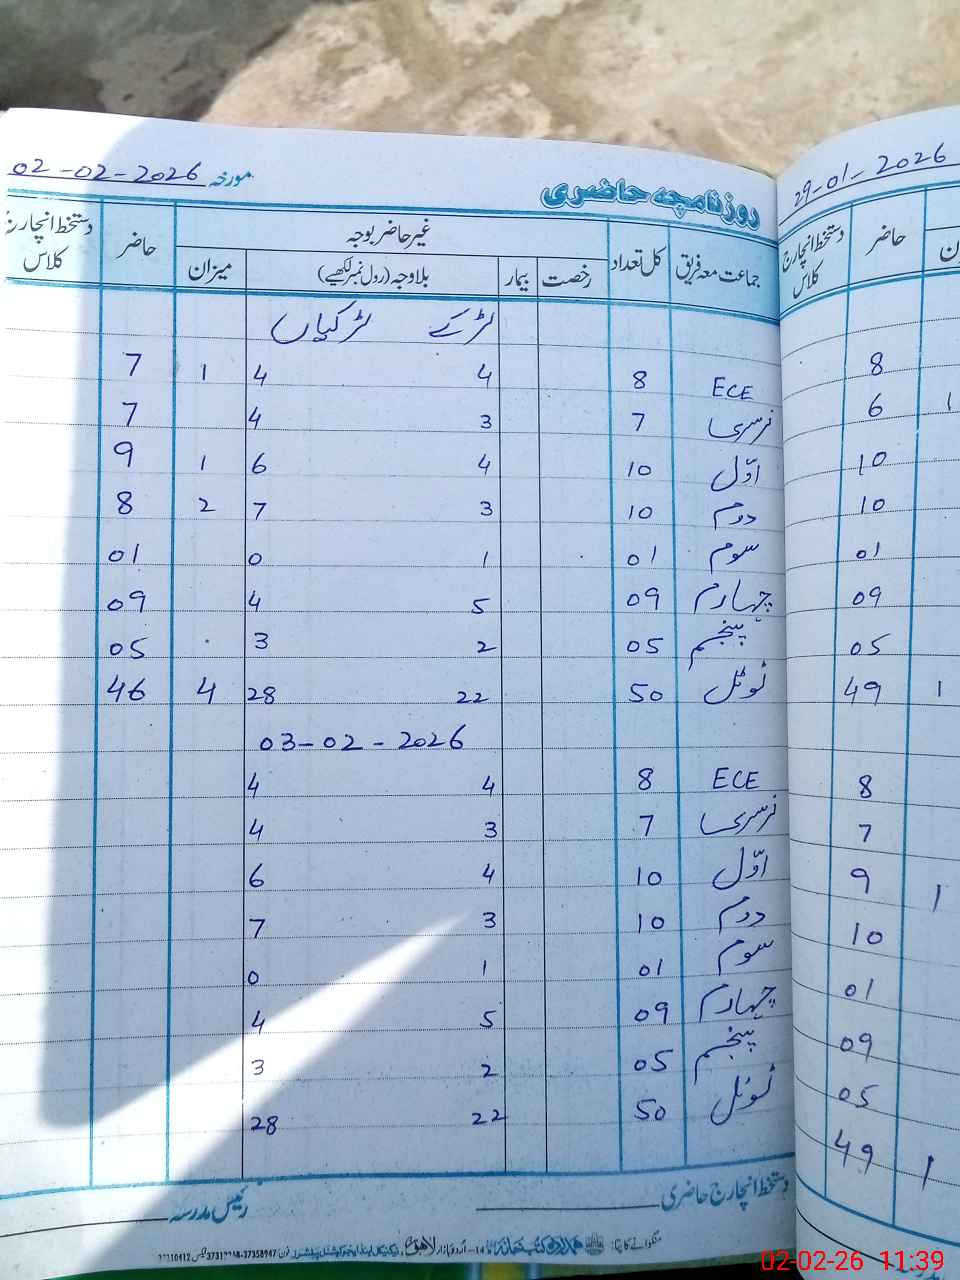 روزنامچہ حاضری مورخہ 02-02-2026
جماعت معہ فریق کل تعداد غیر حاضر بوجہ حاضر دستخط انچارج کلاس
رخصت بیمار بلاوجہ (رول نمبر لکھیے) میزان
لڑکے لڑکیاں
ECE 8 4 4 1 7
نرسری 7 3 4 7
اوّل 10 4 6 1 9
دوم 10 3 7 2 8
سوم 01 1 0 01
چہارم 09 5 4 09
پنجم 05 2 3 05
ٹوٹل 50 22 28 4 46
03-02-2026
ECE 8 4 4
نرسری 7 3 4
اوّل 10 4 6
دوم 10 3 7
سوم 01 1 0
چہارم 09 5 4
پنجم 05 2 3
ٹوٹل 50 22 28
دستخط انچارج حاضری رئیس مدرسہ
29-01-2026
حاضر دستخط انچارج کلاس
8
6 1
10
10
01
09
05
49 1
8
7
9 1
10
01
09
05
49 1
02-02-26 11:39